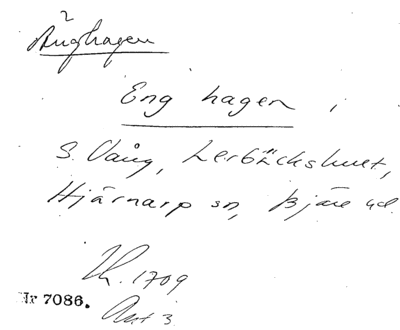 Änghagen
Eng hagen i
S. Vång, Lerbäckshult,
Hjärnarp sn, Bjäre hd.
Lh. 1709
Akt 3
Nr 7086.